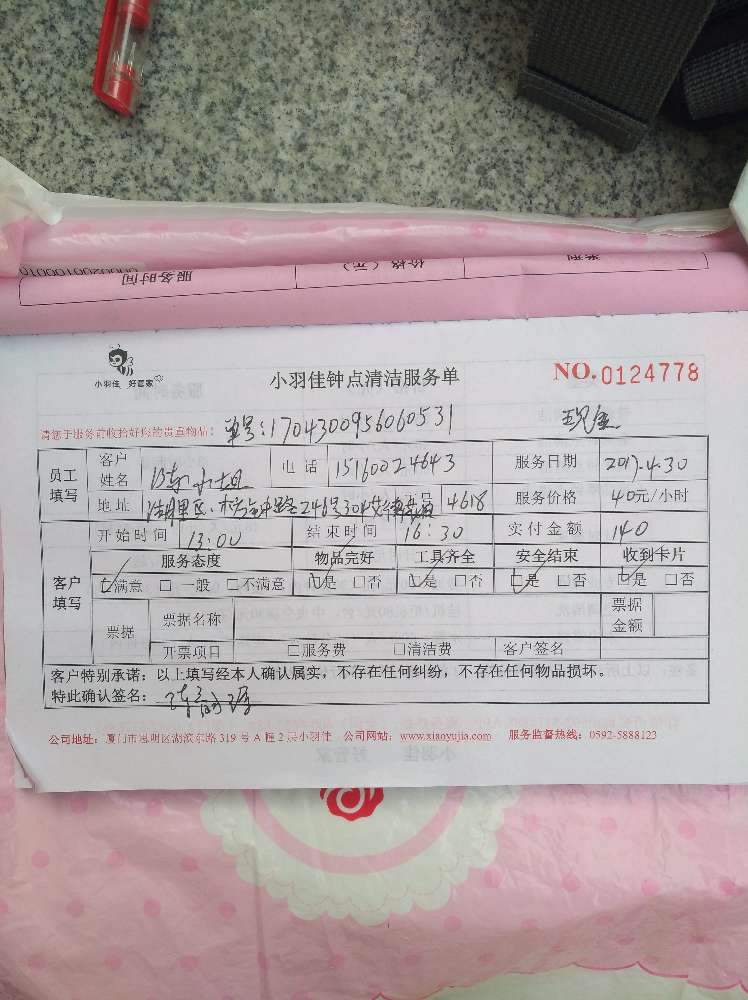 服务时间 价格（元） 类别
小羽佳 好管家
小羽佳钟点清洁服务单
NO.0124778
请您于服务前收拾好您的贵重物品：
单号：1704300956060531 现金
员工填写 客户姓名 电话 15160024643 服务日期 2017.4.30
地址 湖里区 4618 服务价格 40元/小时
开始时间 13:00 结束时间 16:30 实付金额 140
客户填写 服务态度 物品完好 工具齐全 安全结束 收到卡片
☑满意 □一般 □不满意 ☑是 □否 ☑是 □否 ☑是 □否 ☑是 □否
票据 票据名称 票据金额
开票项目 □服务费 □清洁费 客户签名
客户特别承诺：以上填写经本人确认属实，不存在任何纠纷，不存在任何物品损坏。
特此确认签名：
公司地址：厦门市思明区湖滨东路 319 号 A 幢 2 层小羽佳 公司网站：www.xiaoyujia.com 服务监督热线：0592-5888123